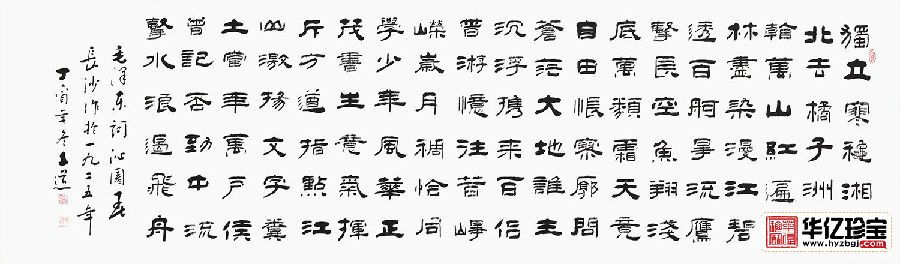 獨立寒穐湘
北去橘子洲
看萬山紅遍
林盡染漫江碧
透百舸爭流鷹
擊長空魚翔淺
底萬類霜天竟
自由悵寥廓問
蒼茫大地誰主
沉浮攜來百侶
曾游憶往昔崢
嶸歲月稠恰同
學少年風華正
茂書生意氣揮
斥方遒指點江
山激揚文字糞
土當年萬戶侯
曾記否到中流
擊水浪遏飛舟
毛澤东詞沁園春
長沙作於一九二五年
丁酉年冬
华亿珍宝
www.hyzbgj.com